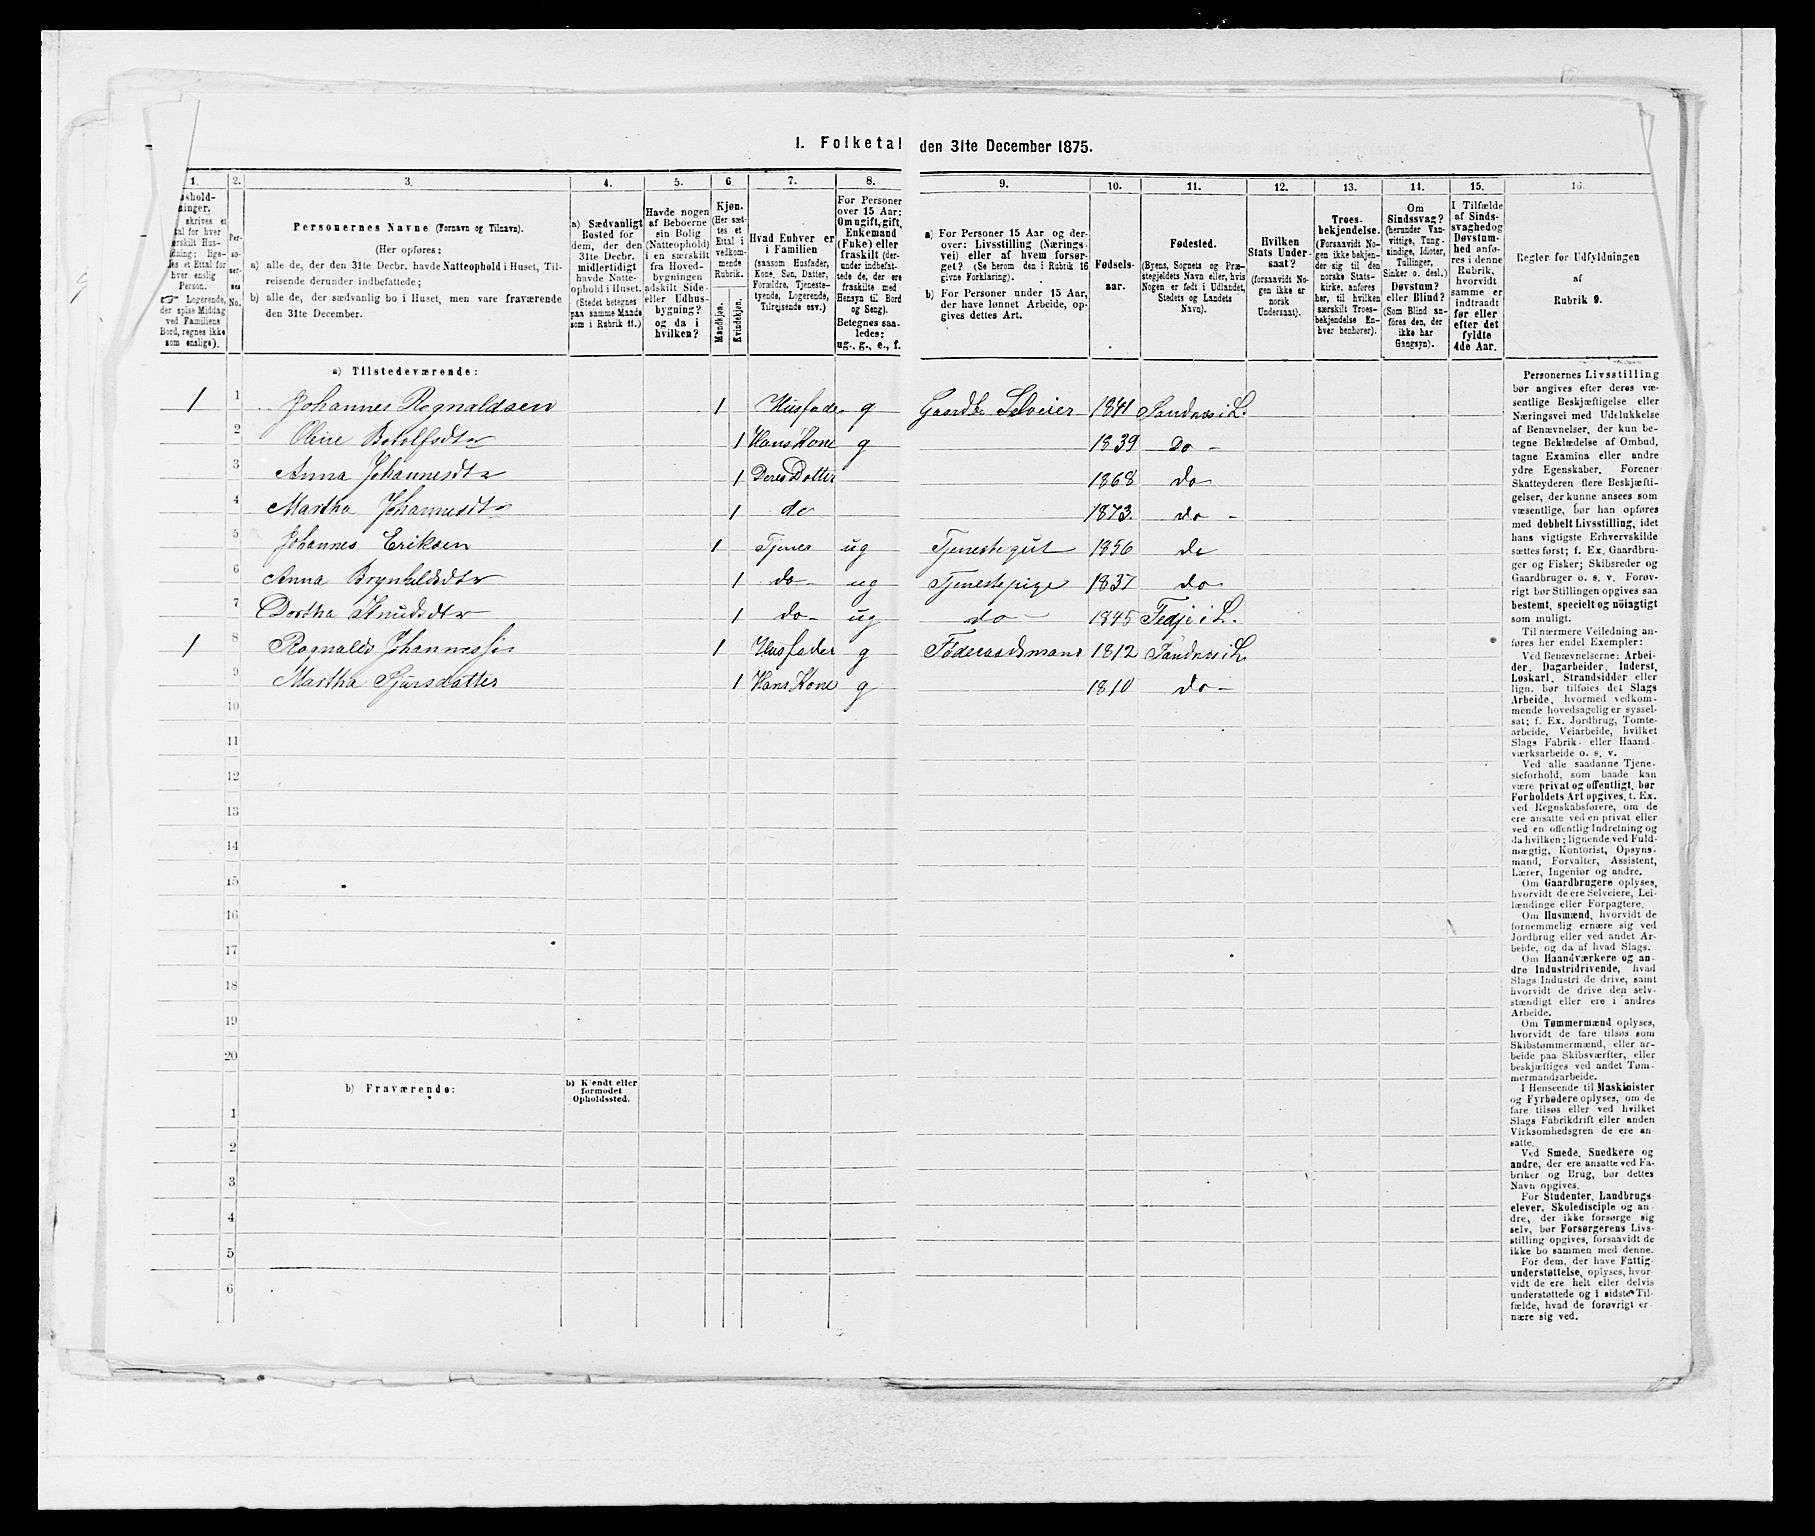 1. Folketal den 31te December 1875.
1. 2. 3. 4. 5. 6. 7. 8. 9. 10. 11. 12. 13. 14. 15. 16.
Personernes Navne (Fornavn og Tilnavn).
(Her opføres:
a) alle de, der den 31te Decbr. havde Natteophold i Huset, Tilreisende derunder indbefattede;
b) alle de, der sædvanlig bo i Huset, men vare fraværende den 31te December.
a) Sædvanligt Bosted for dem, der den 31te Decbr. midlertidigt havde Natteophold i Huset. (Stedet betegnes paa samme Maade som i Rubrik 11.)
Havde nogen af Beboerne sin Bolig (Natteophold) i en særskilt fra Hovedbygningen adskilt Side- eller Udhusbygning? og da i hvilken?
Kjøn. (Her sættes et Ettal i vedkommende Rubrik.
Mandkjøn. Kvindekjøn.
Hvad Enhver er i Familien
(saasom Husfader, Kone, Søn, Datter, Forældre, Tjenestetyende, Logerende, Tilreisende osv.)
For Personer over 15 Aar: Om ugift, gift, Enkemand (Enke) eller fraskilt (derunder indbefattede de, der ere fraskilte med Hensyn til Bord og Seng).
Betegnes saaledes: ug., g., e., f.
a) For Personer 15 Aar og derover: Livsstilling (Næringsvei) eller af hvem forsørget? (Se herom den i Rubrik 16 givne Forklaring).
b) For Personer under 15 Aar, der have lønnet Arbeide, opgives dettes Art.
Fødselsaar.
Fødested.
(Byens, Sognets og Præstegjeldets Navn eller, hvis Nogen er født i Udlandet, Stedets og Landets Navn).
Hvilken Stats Undersaat?
(forsaavidt Nogen ikke er norsk Undersaat).
Troesbekjendelse.
(Forsaavidt Nogen ikke bekjender sig til den norske Statskirke, anføres her, til hvilken særskilt Troesbekjendelse Enhver henhører).
Om Sindssvag? (herunder Vanvittige, Tungsindige, Idioter, Tullinger, Sinker o. desl.) Døvstum? eller Blind? (Som Blind anføres den, der ikke har Gangsyn).
I Tilfælde af Sindssvaghed og Døvstumhed anføres i denne Rubrik, hvorvidt samme er indtraadt før eller efter det fyldte 4de Aar.
Regler før Udfyldningen af Rubrik 9.
a) Tilstedeværende:
1 1 Johannes Rognaldsen 1 Husfader g Gaardb. Selveier 1841 Sandnes i L.
2 Oline Botolfsdtr 1 Hans Kone g 1839 Do -
3 Anna Johannesdtr 1 Deres Datter 1868 do
4 Martha Johannesdtr 1 do 1873 do -
5 Johannes Eriksen 1 Tjener ug Tjenestegut 1856 do
6 Anna Brynhildsdtr 1 do - ug Tjenestepige 1837 do
7 Dortha Knudsdtr 1 do - ug do - 1845 Fedje i L.
1 8 Rognald Johannessen 1 Husfader g Føderaadsmand 1812 Sandnes i L
9 Martha Sjursdatter 1 Hans Kone g 1810 do -
10
11
12
13
14
15
16
17
18
19
20
b) Fraværende:
b) Kjendt eller formodet Opholdssted.
1
2
3
4
5
6
Personernes Livsstilling
bør angives efter deres væ-
sentlige Beskjæftigelse eller
Næringsvei med Udelukkelse
af Benævnelser, der kun be-
tegne Beklædelse af Ombud,
tagne Examina eller andre
ydre Egenskaber. Forener
Skatteyderen flere Beskjæfti-
gelser, der kunne ansees som
væsentlige, bør han opføres
med dobbelt Livsstilling, idet
hans vigtigste Erhvervskilde
sættes først; f. Ex. Gaardbru-
ger og Fisker; Skibsreder og
Gaardbruger o. s. v. Forøv-
rigt bør Stillingen opgives saa
bestemt, specielt og nöiagtigt
som muligt.
Til nærmere Veiledning an-
føres her endel Exempler:
Ved Benævnelserne: Arbei-
der, Dagarbeider, Inderst,
Løskarl, Strandsidder eller
lign. bør tilføies det Slags
Arbeide, hvormed vedkom-
mende hovedsagelig er syssel-
sat; f. Ex. Jordbrug, Tomte-
arbeide, Veiarbeide, hvilket
Slags Fabrik- eller Haand-
værksarbeide o. s. v.
Ved alle saadanne Tjene-
steforhold, som baade kan
være privat og offentligt, bør
Forholdets Art opgives, f. Ex.
ved Regnskabsførere, om de
ere ansatte ved en privat eller
ved en offentlig Indretning og
da hvilken; lignende ved Fuld-
mægtig, Kontorist, Opsyns-
mand, Forvalter, Assistent,
Lærer, Ingeniør og andre.
Om Gaardbrugere oplyses,
hvorvidt de ere Selveiere, Lei-
lændinge eller Forpagtere.
Om Husmænd, hvorvidt de
fornemmelig ernære sig ved
Jordbrug eller ved andet Ar-
beide, og da af hvad Slags.
Om Haandværkere og an-
dre Industridrivende, hvad
Slags Industri de drive, samt
hvorvidt de drive den selv-
stændigt eller ere i andres
Arbeide.
Om Tømmermænd oplyses,
hvorvidt de fare tilsøs som
Skibstømmermænd, eller ar-
beide paa Skibsværfter, eller
beskjæftiges ved andet Tøm-
mermandsarbeide.
I Henseende til Maskinister
og Fyrbødere oplyses, om de
fare tilsøs eller ved hvilket
Slags Fabrikdrift eller anden
Virksomhedsgren de ere an-
satte.
Ved Smede, Snedkere og
andre, der ere ansatte ved Fa-
briker og Brug, bør dettes
Navn opgives.
For Studenter, Landbrugs-
elever, Skoledisciple og an-
dre, der ikke forsørge sig
selv, bør Forsørgerens Livs-
stilling opgives, forsaavidt de
ikke bo sammen med denne.
For dem, der have Fattig-
understøttelse, oplyses, hvor-
vidt de ere helt eller delvis
understøttede og i sidste Til-
fælde, hvad de forøvrigt er-
nære sig ved.